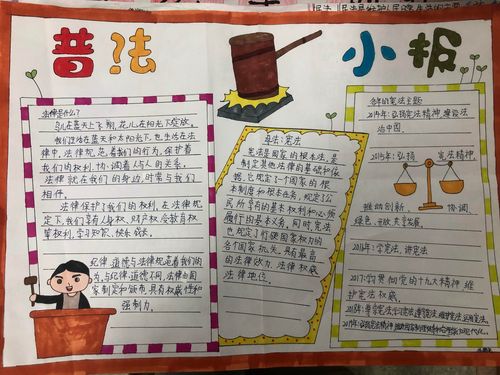 普法小报
法律是什么?
鸟在蓝天上飞翔,花儿在阳光下绽放,
我们生活在蓝天和太阳光下,也生活在法
律中,法律规范着我们的行为,保护着
我们的权利,协调着人与人的关系。
法律就在我们的身边,时常与我们
相伴。
法律保护了我们的权利,在法律规
定下,我们享有人身权、财产权、受教育权
等权利,学习知识、快乐成长。
纪律、道德与法律规范着我们的行
为,与纪律、道德不同,法律由国
家制定和颁布,具有权威性和
强制力。
身法:宪法
宪法是国家的根本法,是
制定其他法律的基础和依
据,它规定了个国家的根
本制度和根本任务,规定公
民所享有的基本权利和必须
履行的基本义务。同时,宪法
也规定了行使国家权力的
各个国家机关,具有最高
的法律效力、法律权威
法律地位。
各年的宪法主题
2014年:弘扬宪法精神,建设法
治中国。
2015年:弘扬 宪法精神,
推动创新、协调、
绿色、开放、共享发展。
2016年:学宪法,讲宪法
2017:学习贯彻党的十九大精神 维
护宪法权威
2018年:尊崇宪法、学习宪法、遵守宪法、维护宪法、运用宪法。